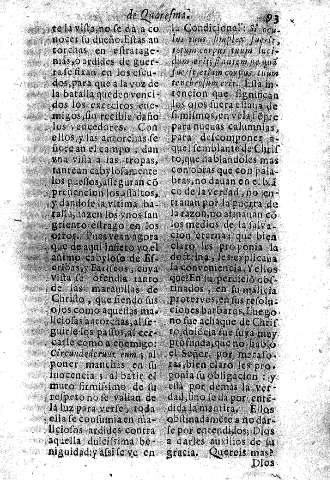 de Quaresma. 93
te la vista, no se dà a co
nocer su dueño. Estas an
torchas, en estratage-
mas, o ardides de guer-
ra se fixan en los escu-
dos, para que a la voz de
la batalla queden venci-
dos los exercitos ene-
migos, sin recibir daño
los vencedores. Con
ellos, y las antorchas se
el campo, dan
vna villa a las tropas,
tantean cabilosamente
los puestos, asseguran cõ
los assaltos,
y dandose la vltima ba-
talla, hazen los vnos san
griento estrago en los
otros. Pues vean agora
que de aqui infiero yo el
animo cabiloso de Es-
cribas, y Fariseos, cuya
vista se ofendia tanto
de las marauillas de
Christo, que siendo sus
ojos como aquellas ma-
liciosas antorchas, al se-
guirle los passos, al cer-
carle como a enemigo:
Circundederunt eum; al
poner manchas en su
inocencia; al batir el
muro firmissimo de su
respeto no se valian de
la luz para verse, toda
ella se consumia en ma-
liciosos ardides contra
aquella dulcissima be-
niguidad: y assi se ve en
la Condicional: Si oculus
tuus simplex fuerit,
totum corpus tuum luci-
dum erit, si autem nequã
fuerit, etiam corpus tuum
tenebrosum erit. Ella in-
tencion que significan
los ojos fuera essaua de
si mismos, en vela sepre
para nuevas calumnias,
para descomponer a-
quel semblante de Chris
to, que hablandoles mas
con obras que con pala-
bras, no dauan en el blã
co de la verdad, no en-
trauan por la puerta de
la razon, no atinauan cõ
los medios de la salua-
cion eterna; que bien
claro les proponia la
dotrina, les explicaua
la conveniencia. Y ellos
que? En su perdicio obs-
tinados, en su malicia
protervos, en sus resolu-
ciones barbaros. Luego
no fue achaque de Chris
to dotrina que fuera muy
profunda, que no hablò
el Señor, por metafo-
ras, bien claro les pro-
ponia su obligacion; y
ella por demàs la ver-
dad, sino se da por enten-
dida la mentira. Ellos
obstinadamete a no dar-
se por entendidos; Dios
a darles auxilios de su
gracia. Quereis mas?
Dios